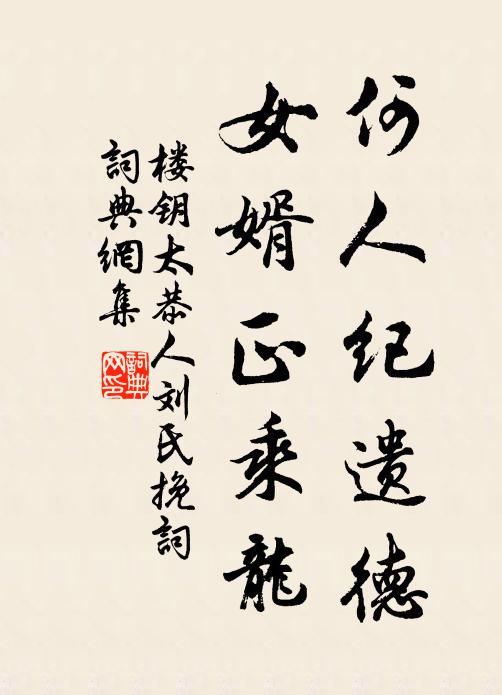 何人纪遗德
女婿正乘龍
楼钥太恭人刘氏挽詞
詞典網集
詞典网印